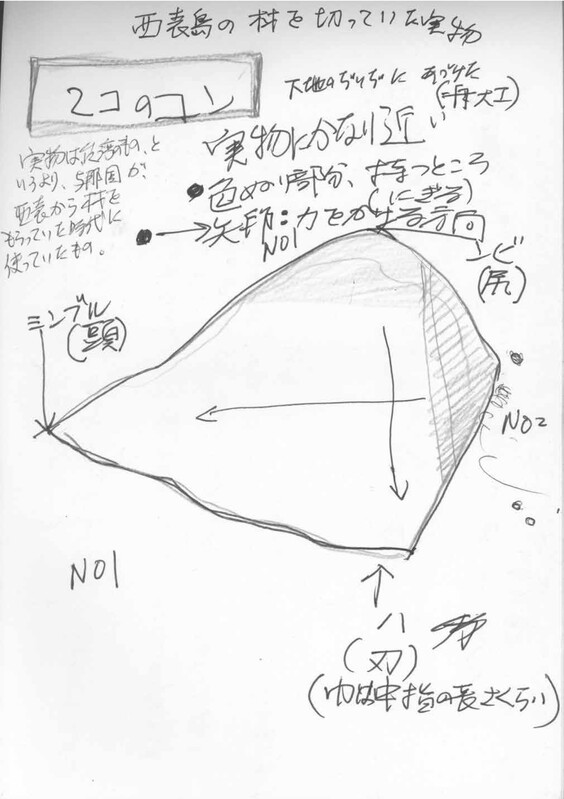 西表島の材を切っていた実物
2コのコン
下地のぢいぢに あづけた
(舟大工)
実物は以降のもの、と
いうより、与那国が、
西表から材を
もらっていた時代に
使っていたもの。
実物にかなり近い
●色ぬり部分、持つところ
(にぎる)
●→矢印:力をかける方向
NO1
ンビ
(尻)
ミンブル
(頭)
NO2
NO1
ハ
(刃)
(巾は中指の長さくらい)